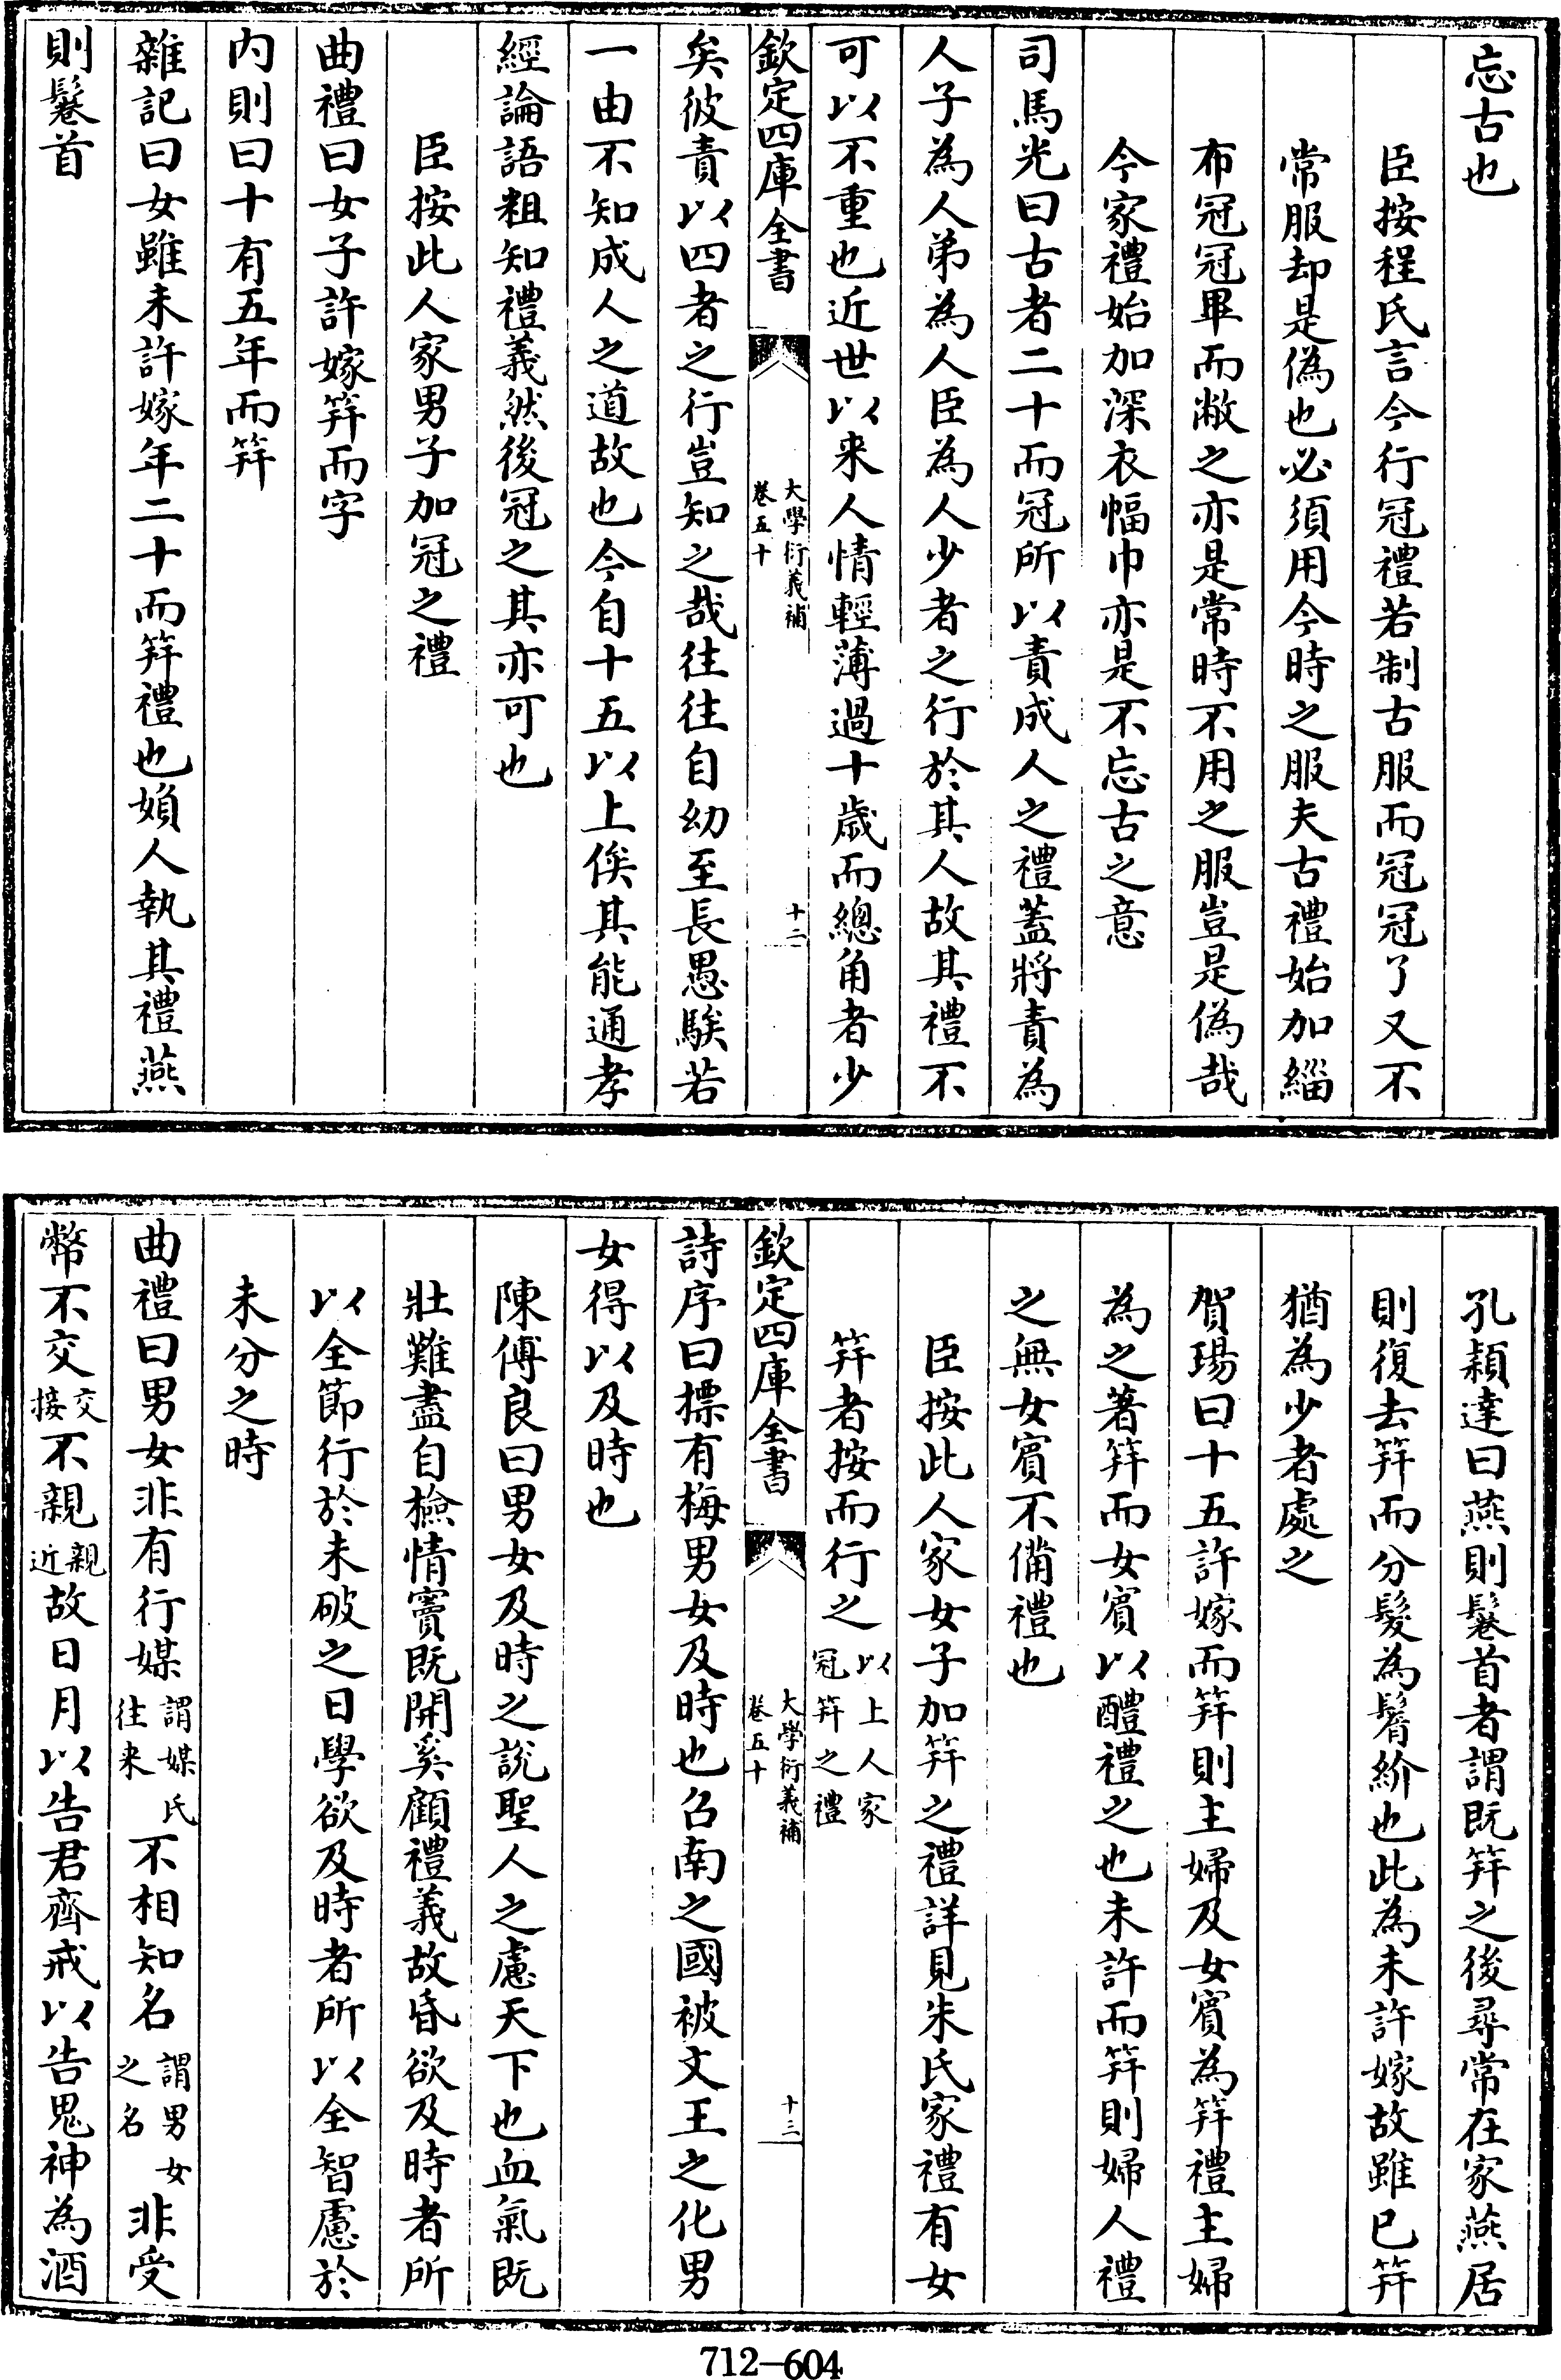 忘古也
臣按程氏言今行冠禮若制古服而冠冠了又不
常服却是偽也必須用今時之服夫古禮始加緇
布冠冠畢而敝之亦是常時不用之服豈是偽哉
今家禮始加深衣幅巾亦是不忘古之意
司馬光曰古者二十而冠所以責成人之禮蓋將責為
人子為人弟為人臣為人少者之行於其人故其禮不
可以不重也近世以来人情輕薄過十歲而總角者少
欽定四庫全書
大學衍義補
卷五十
十二
矣彼責以四者之行豈知之哉往往自幼至長愚騃若
一由不知成人之道故也今自十五以上俟其能通孝
經論語粗知禮義然後冠之其亦可也
臣按此人家男子加冠之禮
曲禮曰女子許嫁笄而字
内則曰十有五年而笄
雜記曰女雖未許嫁年二十而笄禮也媍人執其禮燕
則鬈首
孔穎達曰燕則鬈首者謂既笄之後尋常在家燕居
則復去笄而分髮為鬌紒也此為未許嫁故雖已笄
猶為少者處之
賀瑒曰十五許嫁而笄則主婦及女賓為笄禮主婦
為之著笄而女賓以醴禮之也未許而笄則婦人禮
之無女賓不備禮也
臣按此人家女子加笄之禮詳見朱氏家禮有女
笄者按而行之以上人家冠笄之禮
欽定四庫全書
大學衍義補
卷五十
十三
詩序曰摽有梅男女及時也召南之國被文王之化男
女得以及時也
陳傅良曰男女及時之說聖人之慮天下也血氣既
壯難盡自檢情竇既開奚顧禮義故昏欲及時者所
以全節行於未破之日學欲及時者所以全智慮於
未分之時
曲禮曰男女非有行媒謂媒氏往来不相知名謂男女之名非受
幣不交交接不親親近故日月以告君齊戒以告鬼神為酒
712-604